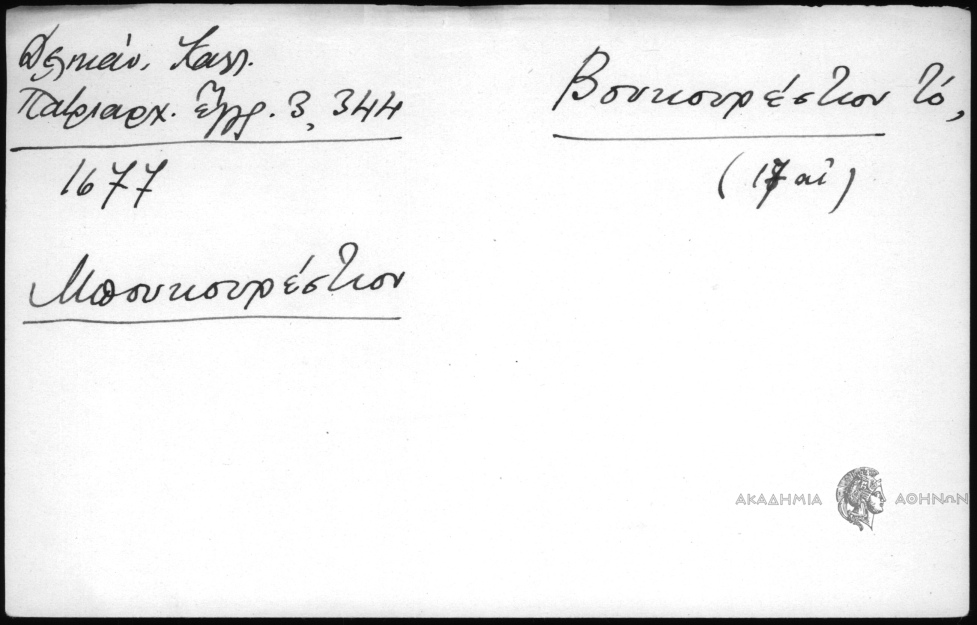 Δελικάν. Καλλ.
Πατριαρχ. ἔγγρ. 3, 344
1677
Βουκουρέστιον τό,
(17 αἰ)
Μπουκουρέστιον
ΑΚΑΔΗΜΙΑ ΑΘΗΝΩΝ